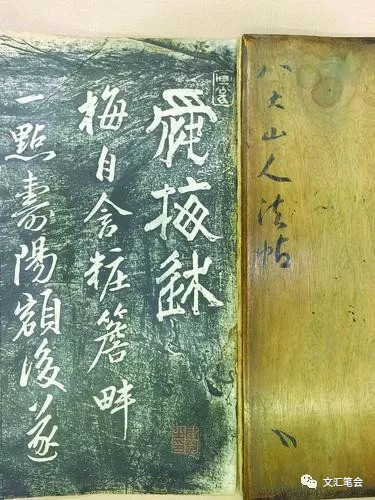 八大山人法帖
梅
梅自含粧簷畔
一點壽陽額後遂
文汇笔会